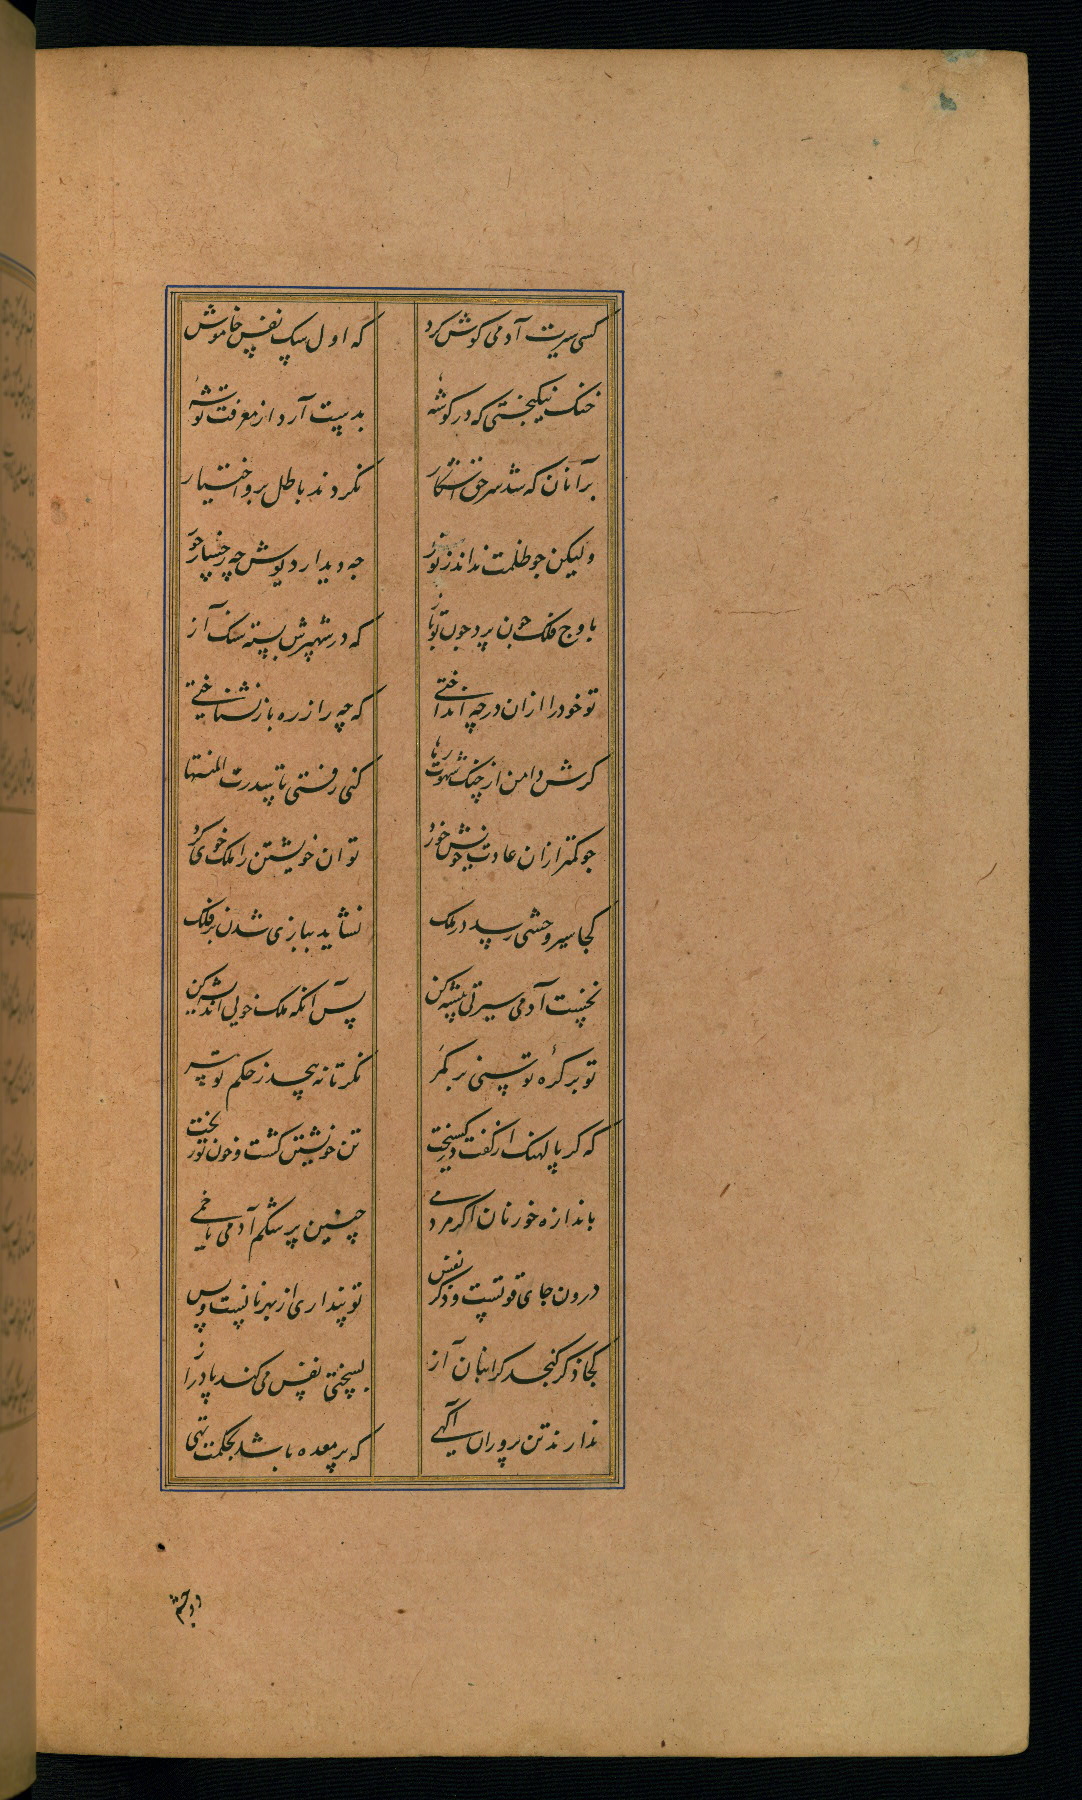 کسی سیرت آدمی کوش کرد که اول سک نفس خاموش
خنک نیکبختی که در کوشه بدست آرد از معرفت توشه
بر آنان که شد سر حق آشکار نکردند باطل برو اختیار
ولیکن جو ظلمت نداند ز نور جه دیدار دیوش چه رخسار حور
باوج فلک جون پرد جون تو باز که در شهپرش بسته سنک آز
تو خود را ازان در چه انداختی که چه را ز ره باز نشناختی
کرش دامن از چنک شهوت رها کنی رفتی تا سدرت المنتها
جو کمتر ازان عادت خویش خورد توان خویشتن را ملک خوی کرد
کجا سیر وحشی رسد در ملک نشاید ببازی شدن بر فلک
نخست آدمی سیرتی پیشه کن پس آنکه ملک خویی اندیشه کن
تو بر کرهٔ توسنی بر کمر نکر تا نه پیچد ز حکم تو سر
که کر پالهنک از کفت در کسیخت تن خویشتن کشت و خون تو ریخت
باندازه خور نان اکر مردمی چنین پر شکم آدمی یا خمی
درون جای قوتست و ذکر نفس تو پنداری از بهر نانست و بس
کجا ذکر کنجد در انبان آز بسختی نفس می کند پا دراز
ندارند تن پروران آکهی که پر معده باشد بحکمت تهی
دو چشم